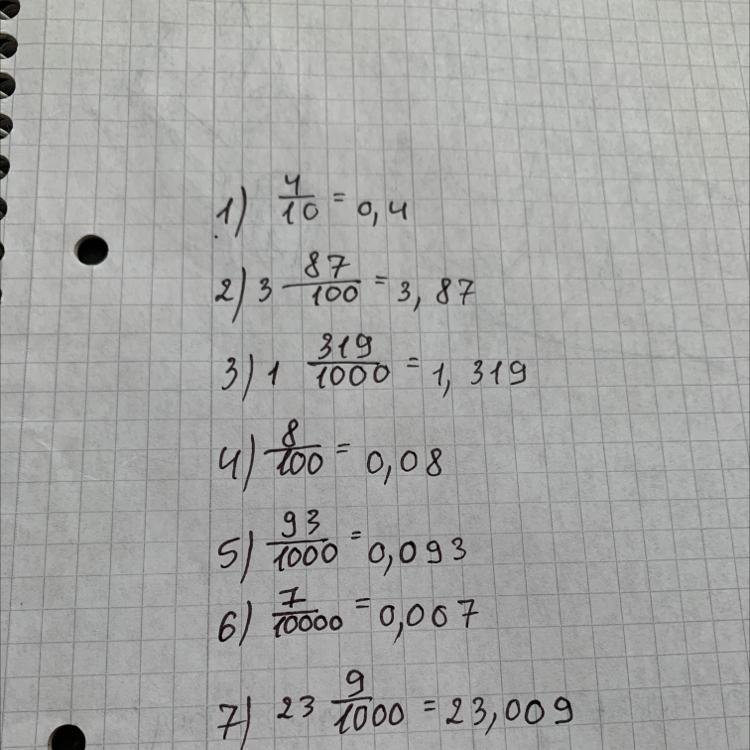 1) 4/10 = 0,4
2) 3 87/100 = 3, 87
3) 1 319/1000 = 1, 319
4) 8/100 = 0,08
5) 93/1000 = 0,093
6) 7/10000 = 0,007
7) 23 9/1000 = 23,009